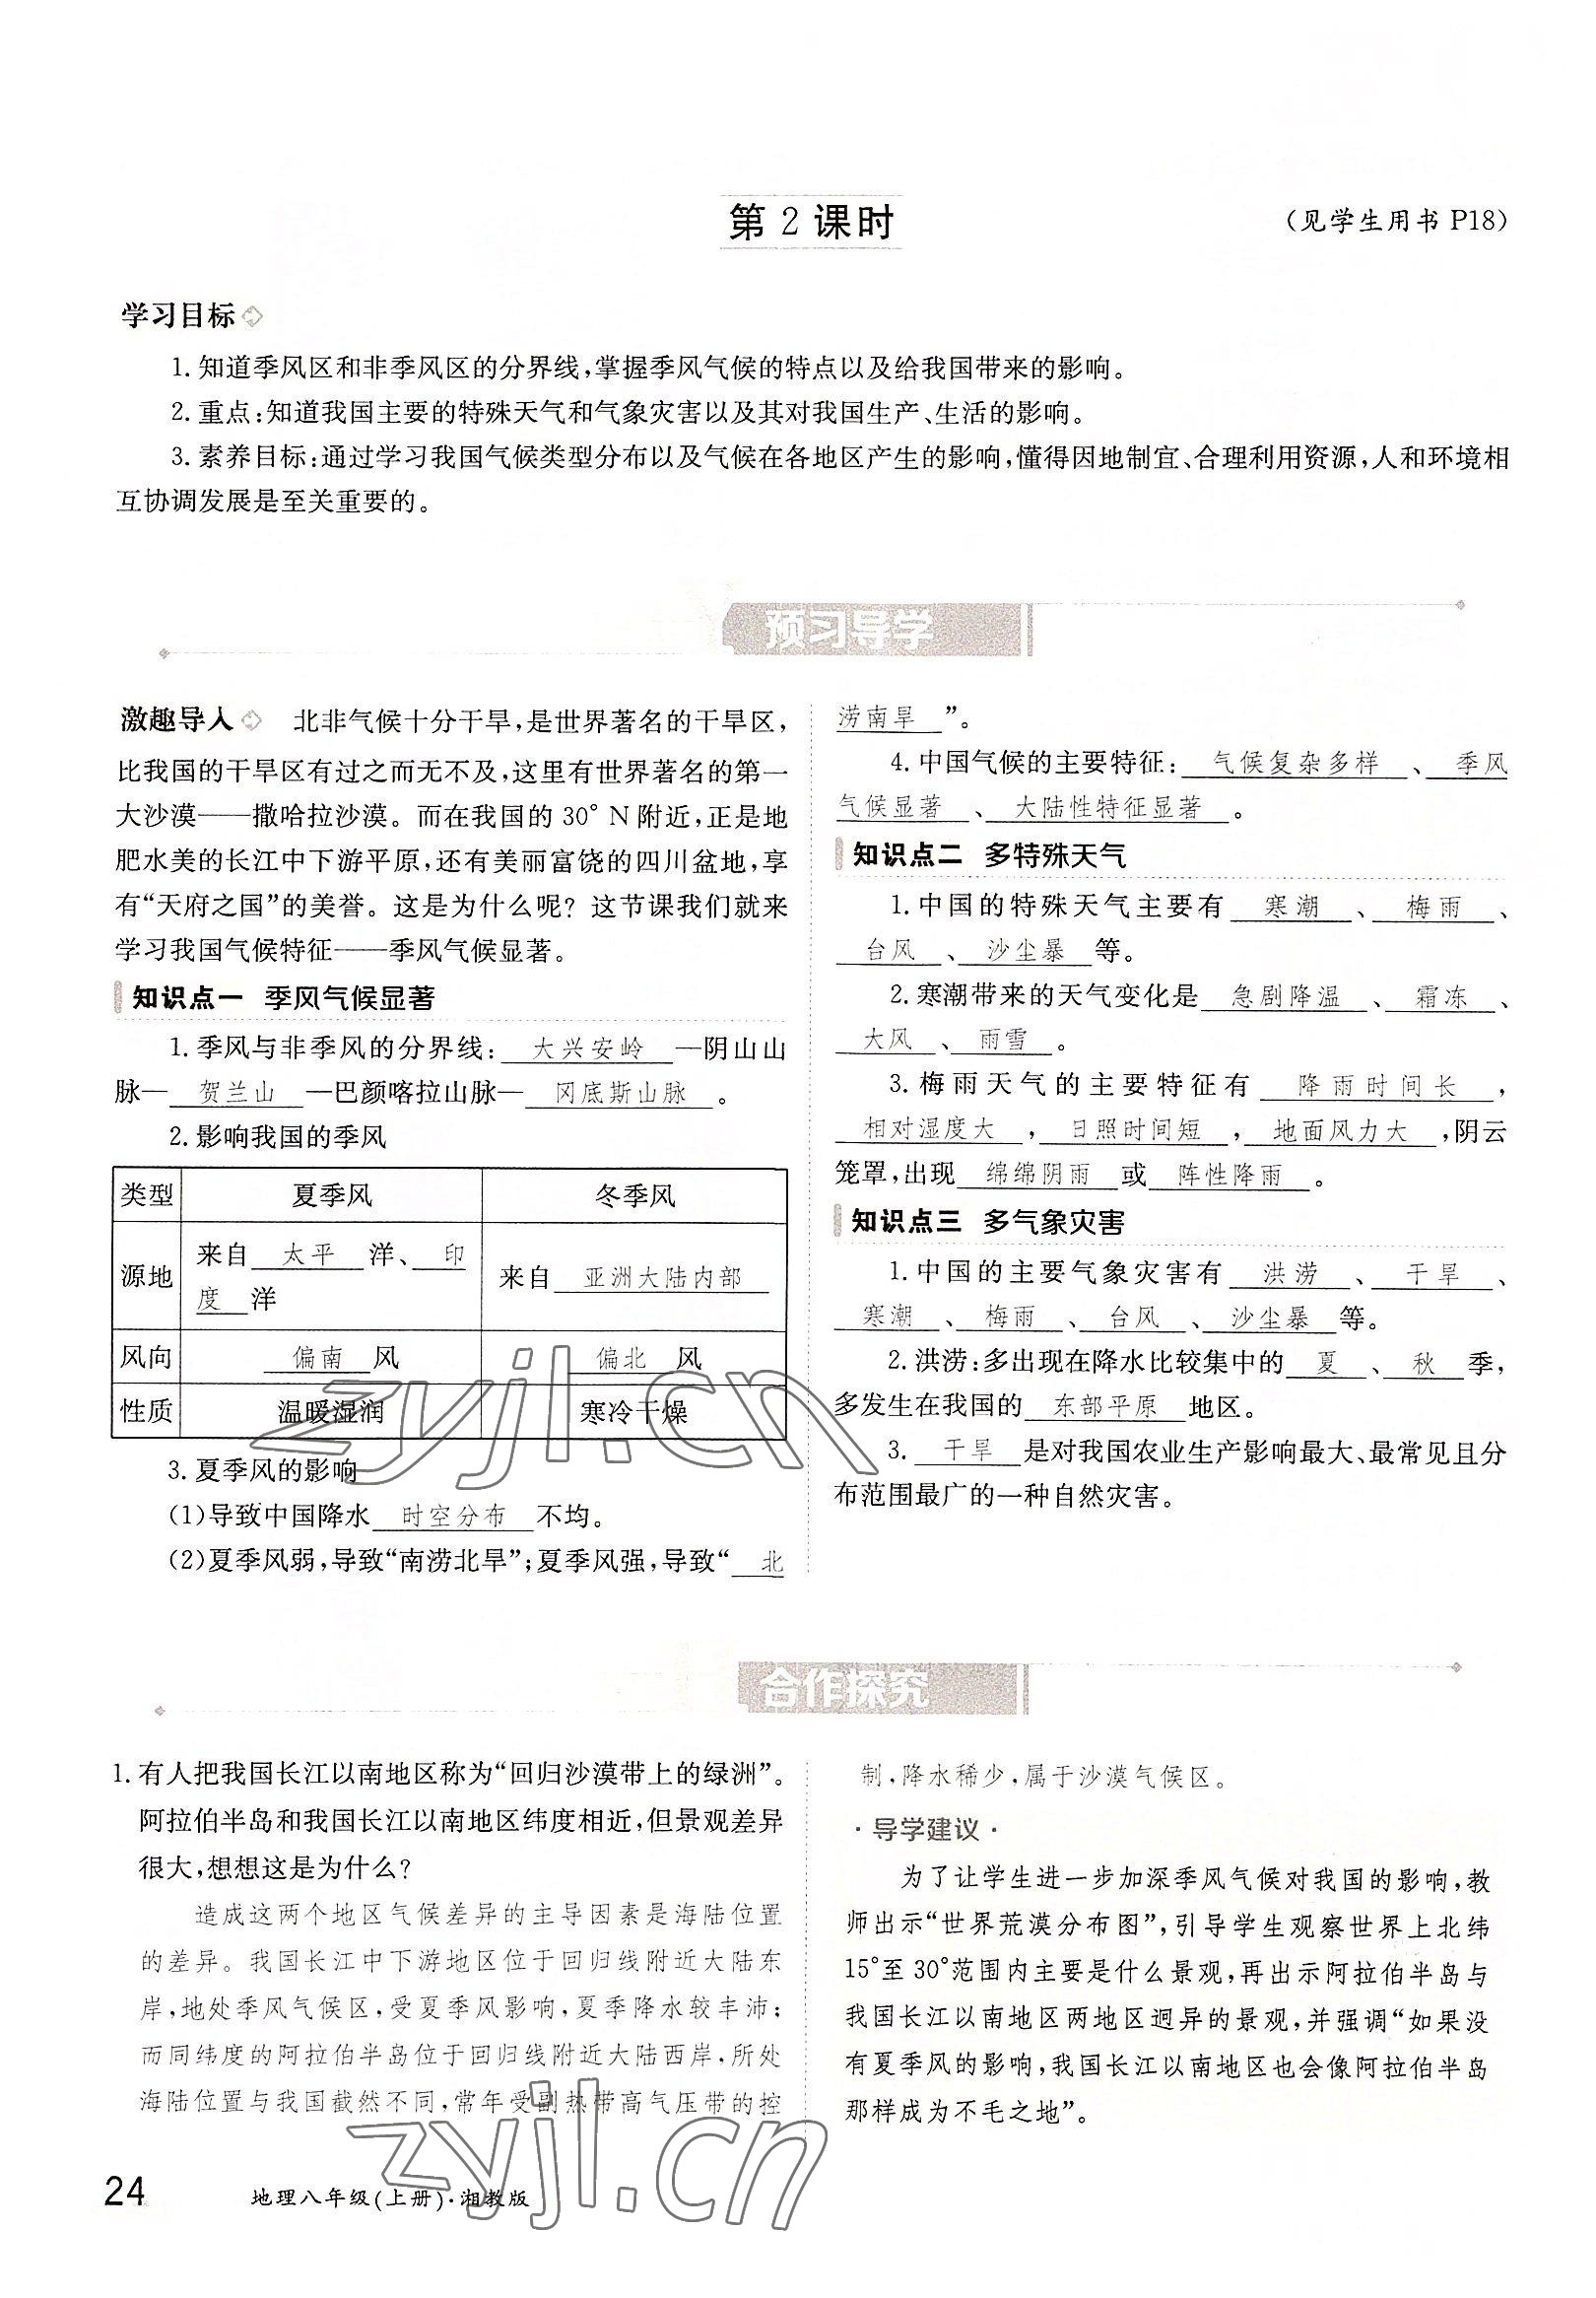 第 2 课时
（见学生用书 P18）
学习目标
1. 知道季风区和非季风区的分界线，掌握季风气候的特点以及给我国带来的影响。
2. 重点：知道我国主要的特殊天气和气象灾害以及其对我国生产、生活的影响。
3. 素养目标：通过学习我国气候类型分布以及气候在各地区产生的影响，懂得因地制宜、合理利用资源，人和环境相
互协调发展是至关重要的。
预习导学
激趣导入 北非气候十分干旱，是世界著名的干旱区，
比我国的干旱区有过之而无不及，这里有世界著名的第一
大沙漠——撒哈拉沙漠。而在我国的 30° N 附近，正是地
肥水美的长江中下游平原，还有美丽富饶的四川盆地，享
有“天府之国”的美誉。这是为什么呢？这节课我们就来
学习我国气候特征——季风气候显著。
知识点一 季风气候显著
1. 季风与非季风的分界线：大兴安岭—阴山山
脉—贺兰山—巴颜喀拉山脉—冈底斯山脉。
2. 影响我国的季风
类型 夏季风 冬季风
源地 来自 太平 洋、印
度 洋 来自 亚洲大陆内部
风向 偏南 风 偏北 风
性质 温暖湿润 寒冷干燥
3. 夏季风的影响
(1)导致中国降水 时空分布 不均。
(2)夏季风弱，导致“南涝北旱”；夏季风强，导致“ 北
涝南旱 ”。
4. 中国气候的主要特征：气候复杂多样、季风
气候显著、大陆性特征显著。
知识点二 多特殊天气
1. 中国的特殊天气主要有 寒潮、梅雨、
台风、沙尘暴 等。
2. 寒潮带来的天气变化是 急剧降温、霜冻、
大风、雨雪。
3. 梅雨天气的主要特征有 降雨时间长，
相对湿度大，日照时间短，地面风力大，阴云
笼罩，出现 绵绵阴雨 或 阵性降雨。
知识点三 多气象灾害
1. 中国的主要气象灾害有 洪涝、干旱、
寒潮、梅雨、台风、沙尘暴 等。
2. 洪涝：多出现在降水比较集中的 夏、秋 季，
多发生在我国的 东部平原 地区。
3. 干旱 是对我国农业生产影响最大、最常见且分
布范围最广的一种自然灾害。
合作探究
1. 有人把我国长江以南地区称为“回归沙漠带上的绿洲”。
阿拉伯半岛和我国长江以南地区纬度相近，但景观差异
很大，想想这是为什么？
造成这两个地区气候差异的主导因素是海陆位置
的差异。我国长江中下游地区位于回归线附近大陆东
岸，地处季风气候区，受夏季风影响，夏季降水较丰沛；
而同纬度的阿拉伯半岛位于回归线附近大陆西岸，所处
海陆位置与我国截然不同，常年受副热带高气压带的控
制，降水稀少，属于沙漠气候区。
·导学建议·
为了让学生进一步加深季风气候对我国的影响，教
师出示“世界荒漠分布图”，引导学生观察世界上北纬
15°至 30°范围内主要是什么景观，再出示阿拉伯半岛与
我国长江以南地区两地区迥异的景观，并强调“如果没
有夏季风的影响，我国长江以南地区也会像阿拉伯半岛
那样成为不毛之地”。
24 地理八年级(上册)·湘教版
zyjl.cn
zyjl.cn